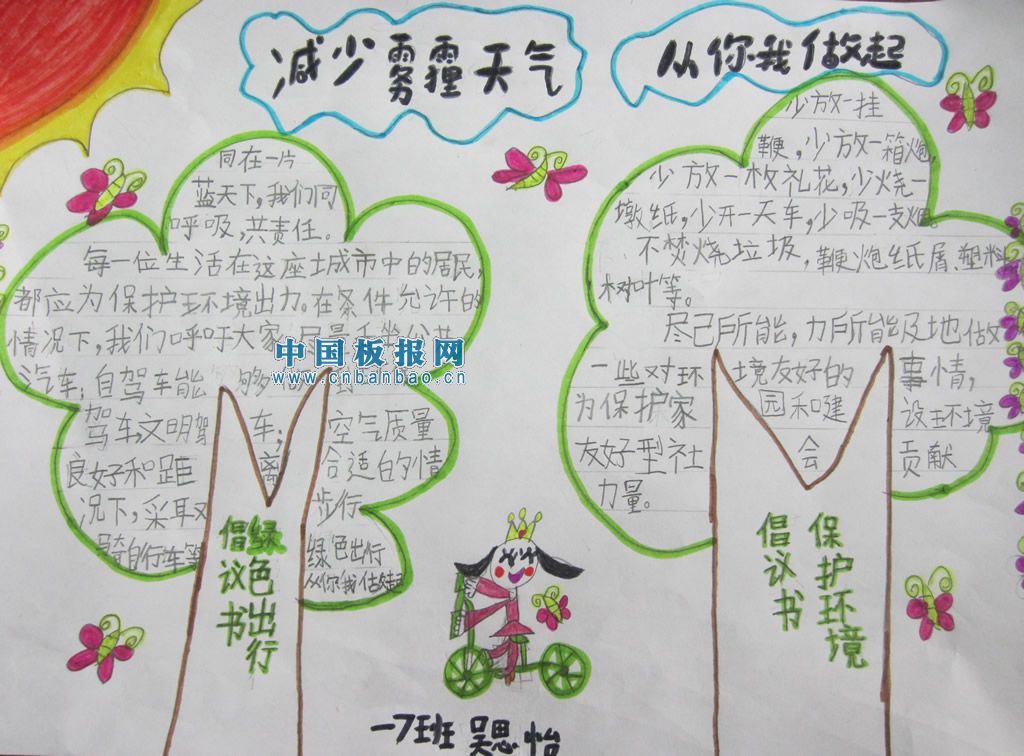 减少雾霾天气
从你我做起
同在一片
蓝天下,我们同
呼吸,共责任。
每一位生活在这座城市中的居民,
都应为保护环境出力。在条件允许的
情况下,我们呼吁大家
汽车;自驾车能够
驾车,文明驾车;空气质量
良好和距离合适的情
况下,采取步行
骑自行车等绿色出行
从你我做起
绿色出行
倡议书
少放一挂
鞭,少放一箱炮,
少放一枚礼花,少烧一
墩纸,少开一天车,少吸一支烟。
不焚烧垃圾,鞭炮纸屑、塑料
树叶等。
尽己所能,力所能及地做
一些对环境友好的事情,
为保护家园和建设环境
友好型社会贡献
力量。
保护环境
倡议书
一7班 吴思怡
中国板报网
www.cnbanbao.cn